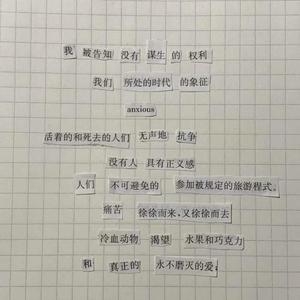 我 被告知 没有 谋生 的 权利
我们 所处的时代 的象征
anxious
活着的和死去的人们 无声地 抗争
没有人 具有正义感
人们 不可避免的 参加被规定的旅游程式。
痛苦 徐徐而来,又徐徐而去
冷血动物 渴望 水果和巧克力
和 真正的 永不磨灭的爱;